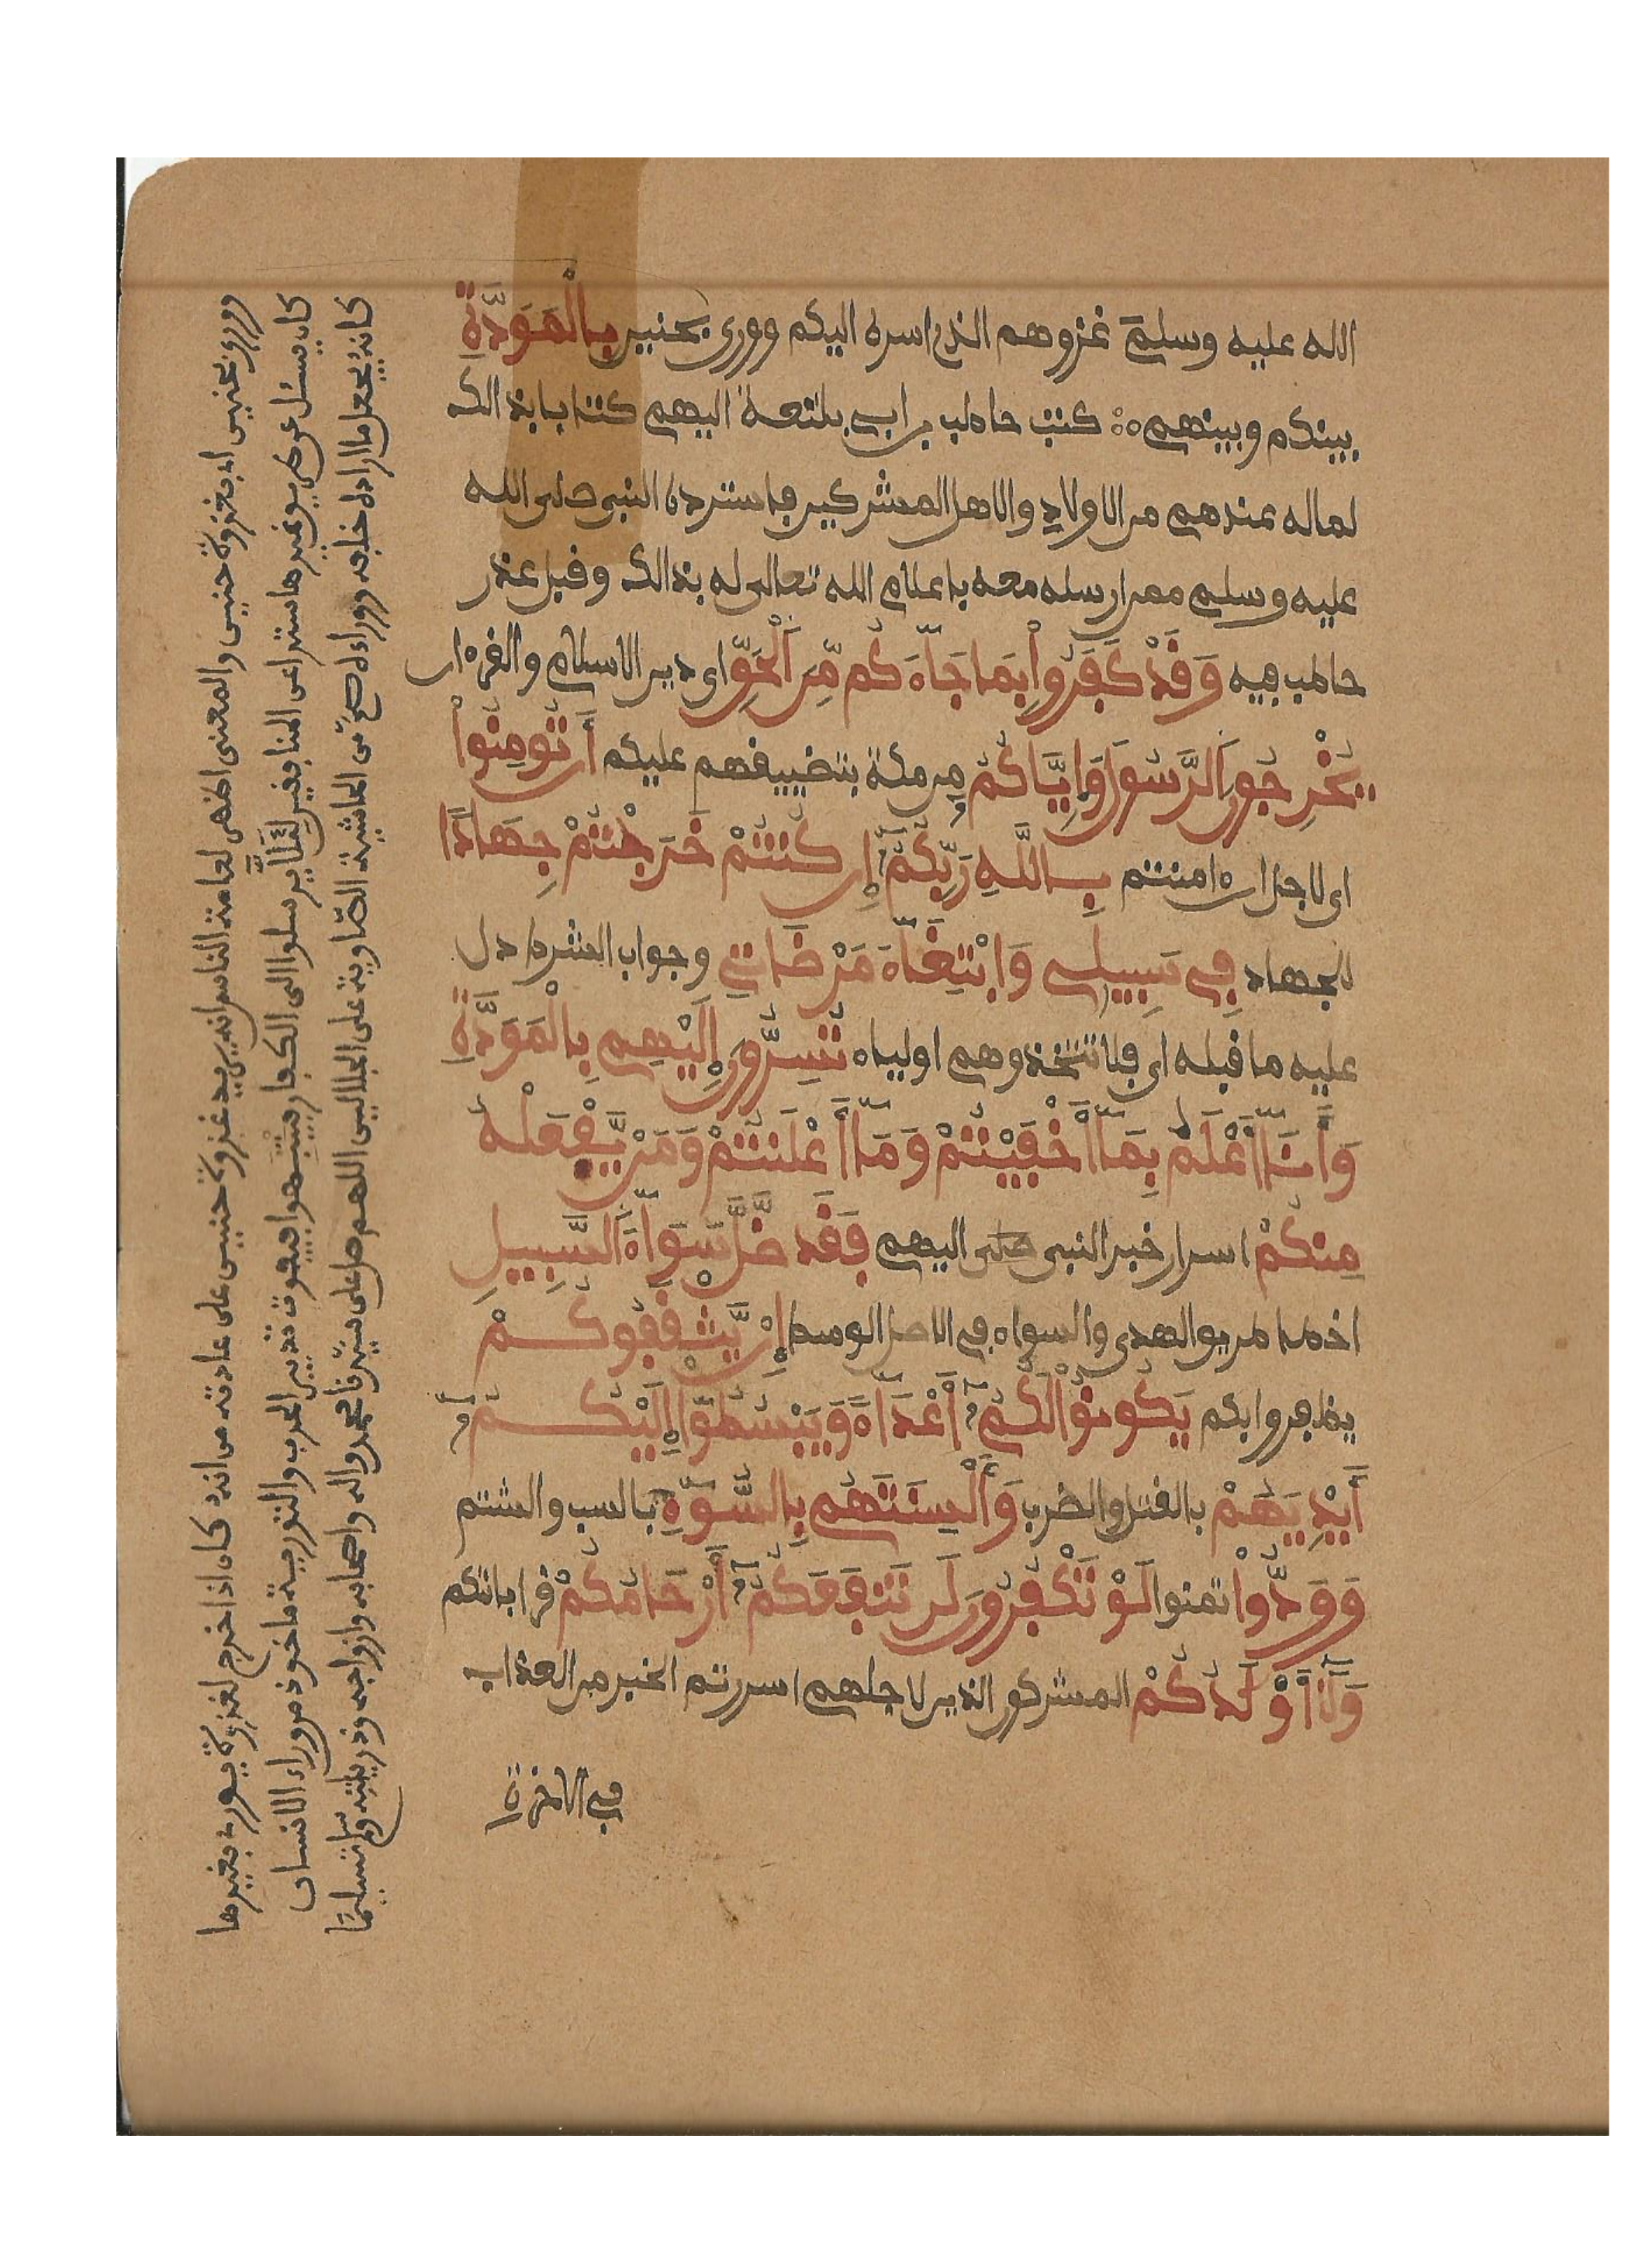 الله عليه وسلم غزوهم الذى اسره اليكم وورى بحنين بِالْمَوَدَّةِ
بينكم وبينهم كتب حاطب بن ابى بلتعة اليهم كتابا بذالك
لماله عندهم من الاولاد والاهل المشركين فاسترده النبى صلى الله
عليه وسلم ممن ارسله معه باعلام الله تعالى له بذالك وقبل عذر
حاطب فيه وَقَدْ كَفَرُواْ بِمَا جَآءَكُم مِّنَ ٱلْحَقِّ اى دين الاسلام والقرءان
يُخْرِجُونَ ٱلرَّسُولَ وَإِيَّاكُمُ من مكة بتضييقهم عليكم أَن تُومِنُواْ
اى لاجل ان ءامنتم بِاللَّهِ رَبِّكُمُ إِن كُنتُمْ خَرَجْتُمْ جِهَادًا
للجهاد فِى سَبِيلِى وَابْتِغَآءَ مَرْضَاتِى وجواب الشرط دل
عليه ما قبله اى فلا تتخذوهم اولياء تُسِرُّونَ إِلَيْهِم بِالْمَوَدَّةِ
وَأَنَآ أَعْلَمُ بِمَآ أَخْفَيْتُمْ وَمَآ أَعْلَنتُمْ وَمَنْ يَّفْعَلْهُ
مِنكُمْ اسرار خبر النبى صلى اليهم فَقَد ضَّلَّ سَوَآءَ ٱلسَّبِيلِ
اخطا طريق الهدى والسواء فى الاصل الوسط إِنْ يَّثْقَفُوكُمْ
يظفروا بكم يَكُونُواْ لَكُمُ أَعْدَآءً وَيَبْسُطُوٓاْ إِلَيْكُمُ
أَيْدِيَهُمْ بالقتل والضرب وَأَلْسِنَتَهُم بِالسُّوٓءِ بالسب والشتم
وَوَدُّواْ تمنوا لَوْ تَكْفُرُونَ لَن تَنفَعَكُمُ أَرْحَامُكُمْ قراباتكم
وَلَآ أَوْلَٰدُكُمْ المشركون الذين لاجلهم اسررتم الخبر من العذاب
فى الاخرة
وورى بحنين اى بغزوة حنين والمعنى اظهر لعامة الناس انه يريد غزوة حنين على عادته من انه كان اذا خرج لغزوة يورى بغيرها
كان يسئل عن طريق غيرها ستراعن المنافقين لئلا يرسلوا الى الكفار فينتبهوا فيفوت تدبير الحرب والتورية ماخوذ من وراء الانسان
كانه يجعل ما اراده خلفه ووراءه صح من الحاشية الصاوية على الجلالين اللهم صل على سيدنا محمد واله واصحابه وازواجه وذريته وسلم تسليما